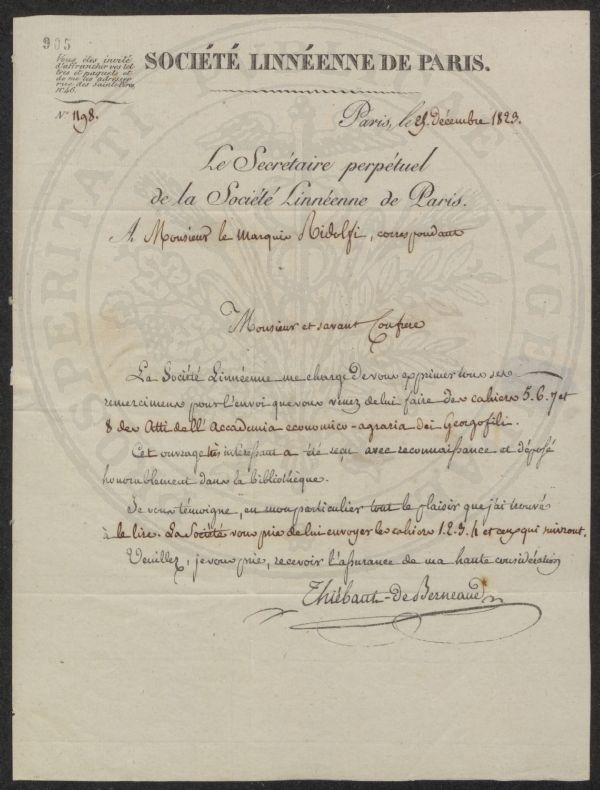 905
Vous êtes invité
d'affranchir vos let
tres et paquets et
de me les adresser
rue des Saints-Pères
N.º 46.
SOCIÉTÉ LINNÉENNE DE PARIS.
N.º 1198.
Paris, le 25 Décembre 1823.
Le Secrétaire perpétuel
de la Société Linnéenne de Paris.
A Monsieur le marquis Ridolfi, correspondant
Monsieur et savant Confrere
La Société Linnéenne me charge de vous exprimer tous ses
remercimens pour l'envoi que vous venez de lui faire des cahiers 5. 6. 7 et
8 des Atti dell' Accademia economico-agraria dei Georgofili.
Cet ouvrage très intéressant a été reçu avec reconnaissance et déposé
honorablement dans la bibliothèque.
Je vous témoigne, en mon particulier tout le plaisir que j'ai trouvé
à le lire. La Société vous prie de lui envoyer les cahiers 1. 2. 3. 4 et ceux qui suivront.
Veuillez, je vous prie, recevoir l'assurance de ma haute considération
Thiébaut-de-Berneaud
PROSPERITATI PUBLICAE AUGENDAE